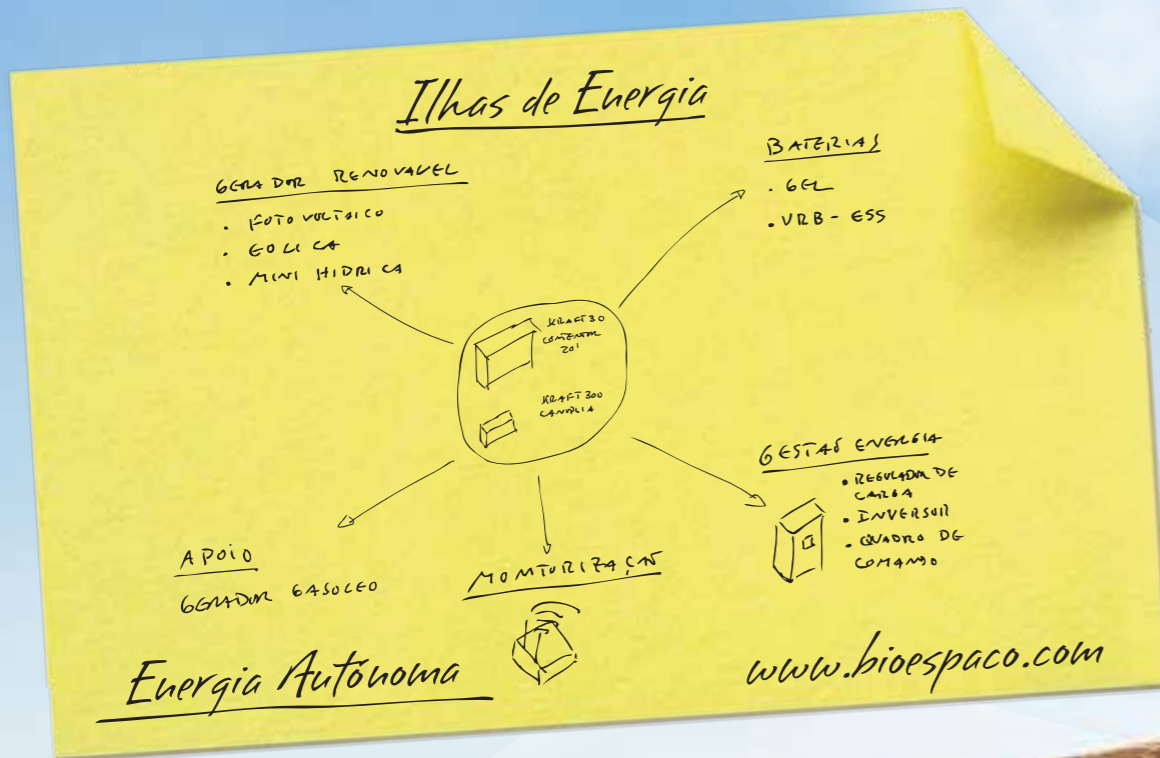 Ilhas de Energia
GERADOR RENOVAVEL
. FOTOVOLTAICO
. EOLICA
. MINI HIDRICA
BATERIAS
. GEL
. VRB - ESS
KRAFT30
CONTENTOR
20'
KRAFT300
CANOPLIA
GESTAÕ ENERGIA
. REGULADOR DE
CARGA
. INVERSOR
. QUADRO DE
COMANDO
APOIO
GERADOR GASOLEO
MONITORIZAÇAÕ
Energia Autónoma
www.bioespaco.com